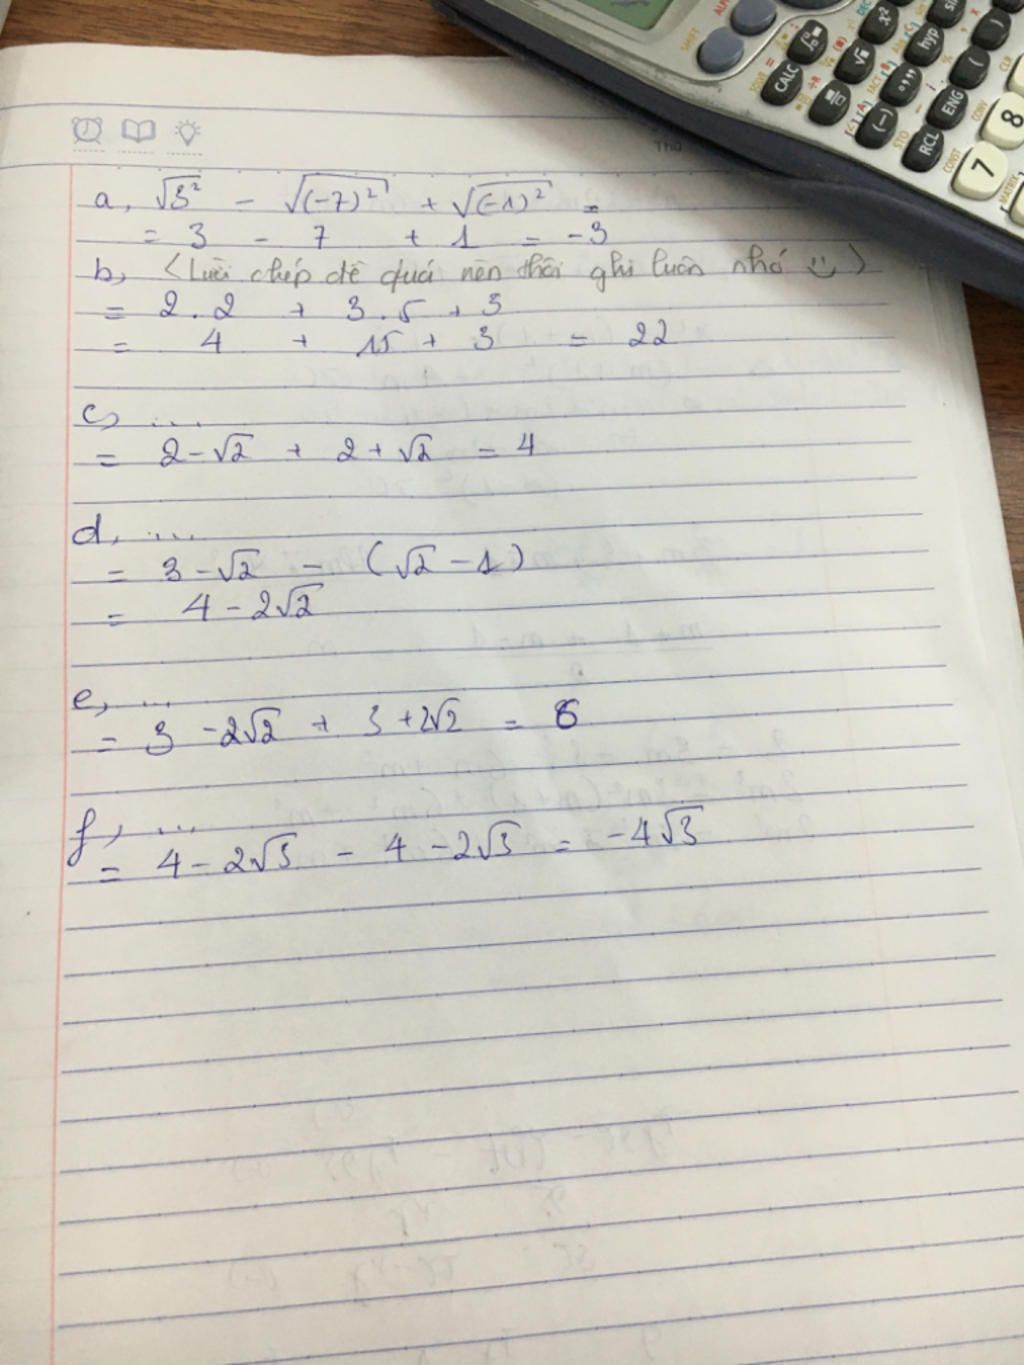 Thứ
a, √3² - √(-7)² + √(-1)² =
= 3 - 7 + 1 = -3
b, (Lười chép đề quá nên thôi ghi luôn nhá :))
= 2.2 + 3.5 + 3
= 4 + 15 + 3 = 22
c, ...
= 2-√2 + 2+√2 = 4
d, ...
= 3-√2 - (√2-1)
= 4-2√2
e, ...
= 3 -2√2 + 3+2√2 = 6
f, ...
= 4-2√3 - 4-2√3 = -4√3
SHIFT
CALC
hyp
(-)
RCL
ENG
STO
CONST
CONV
CLR
MATRIX
7
8